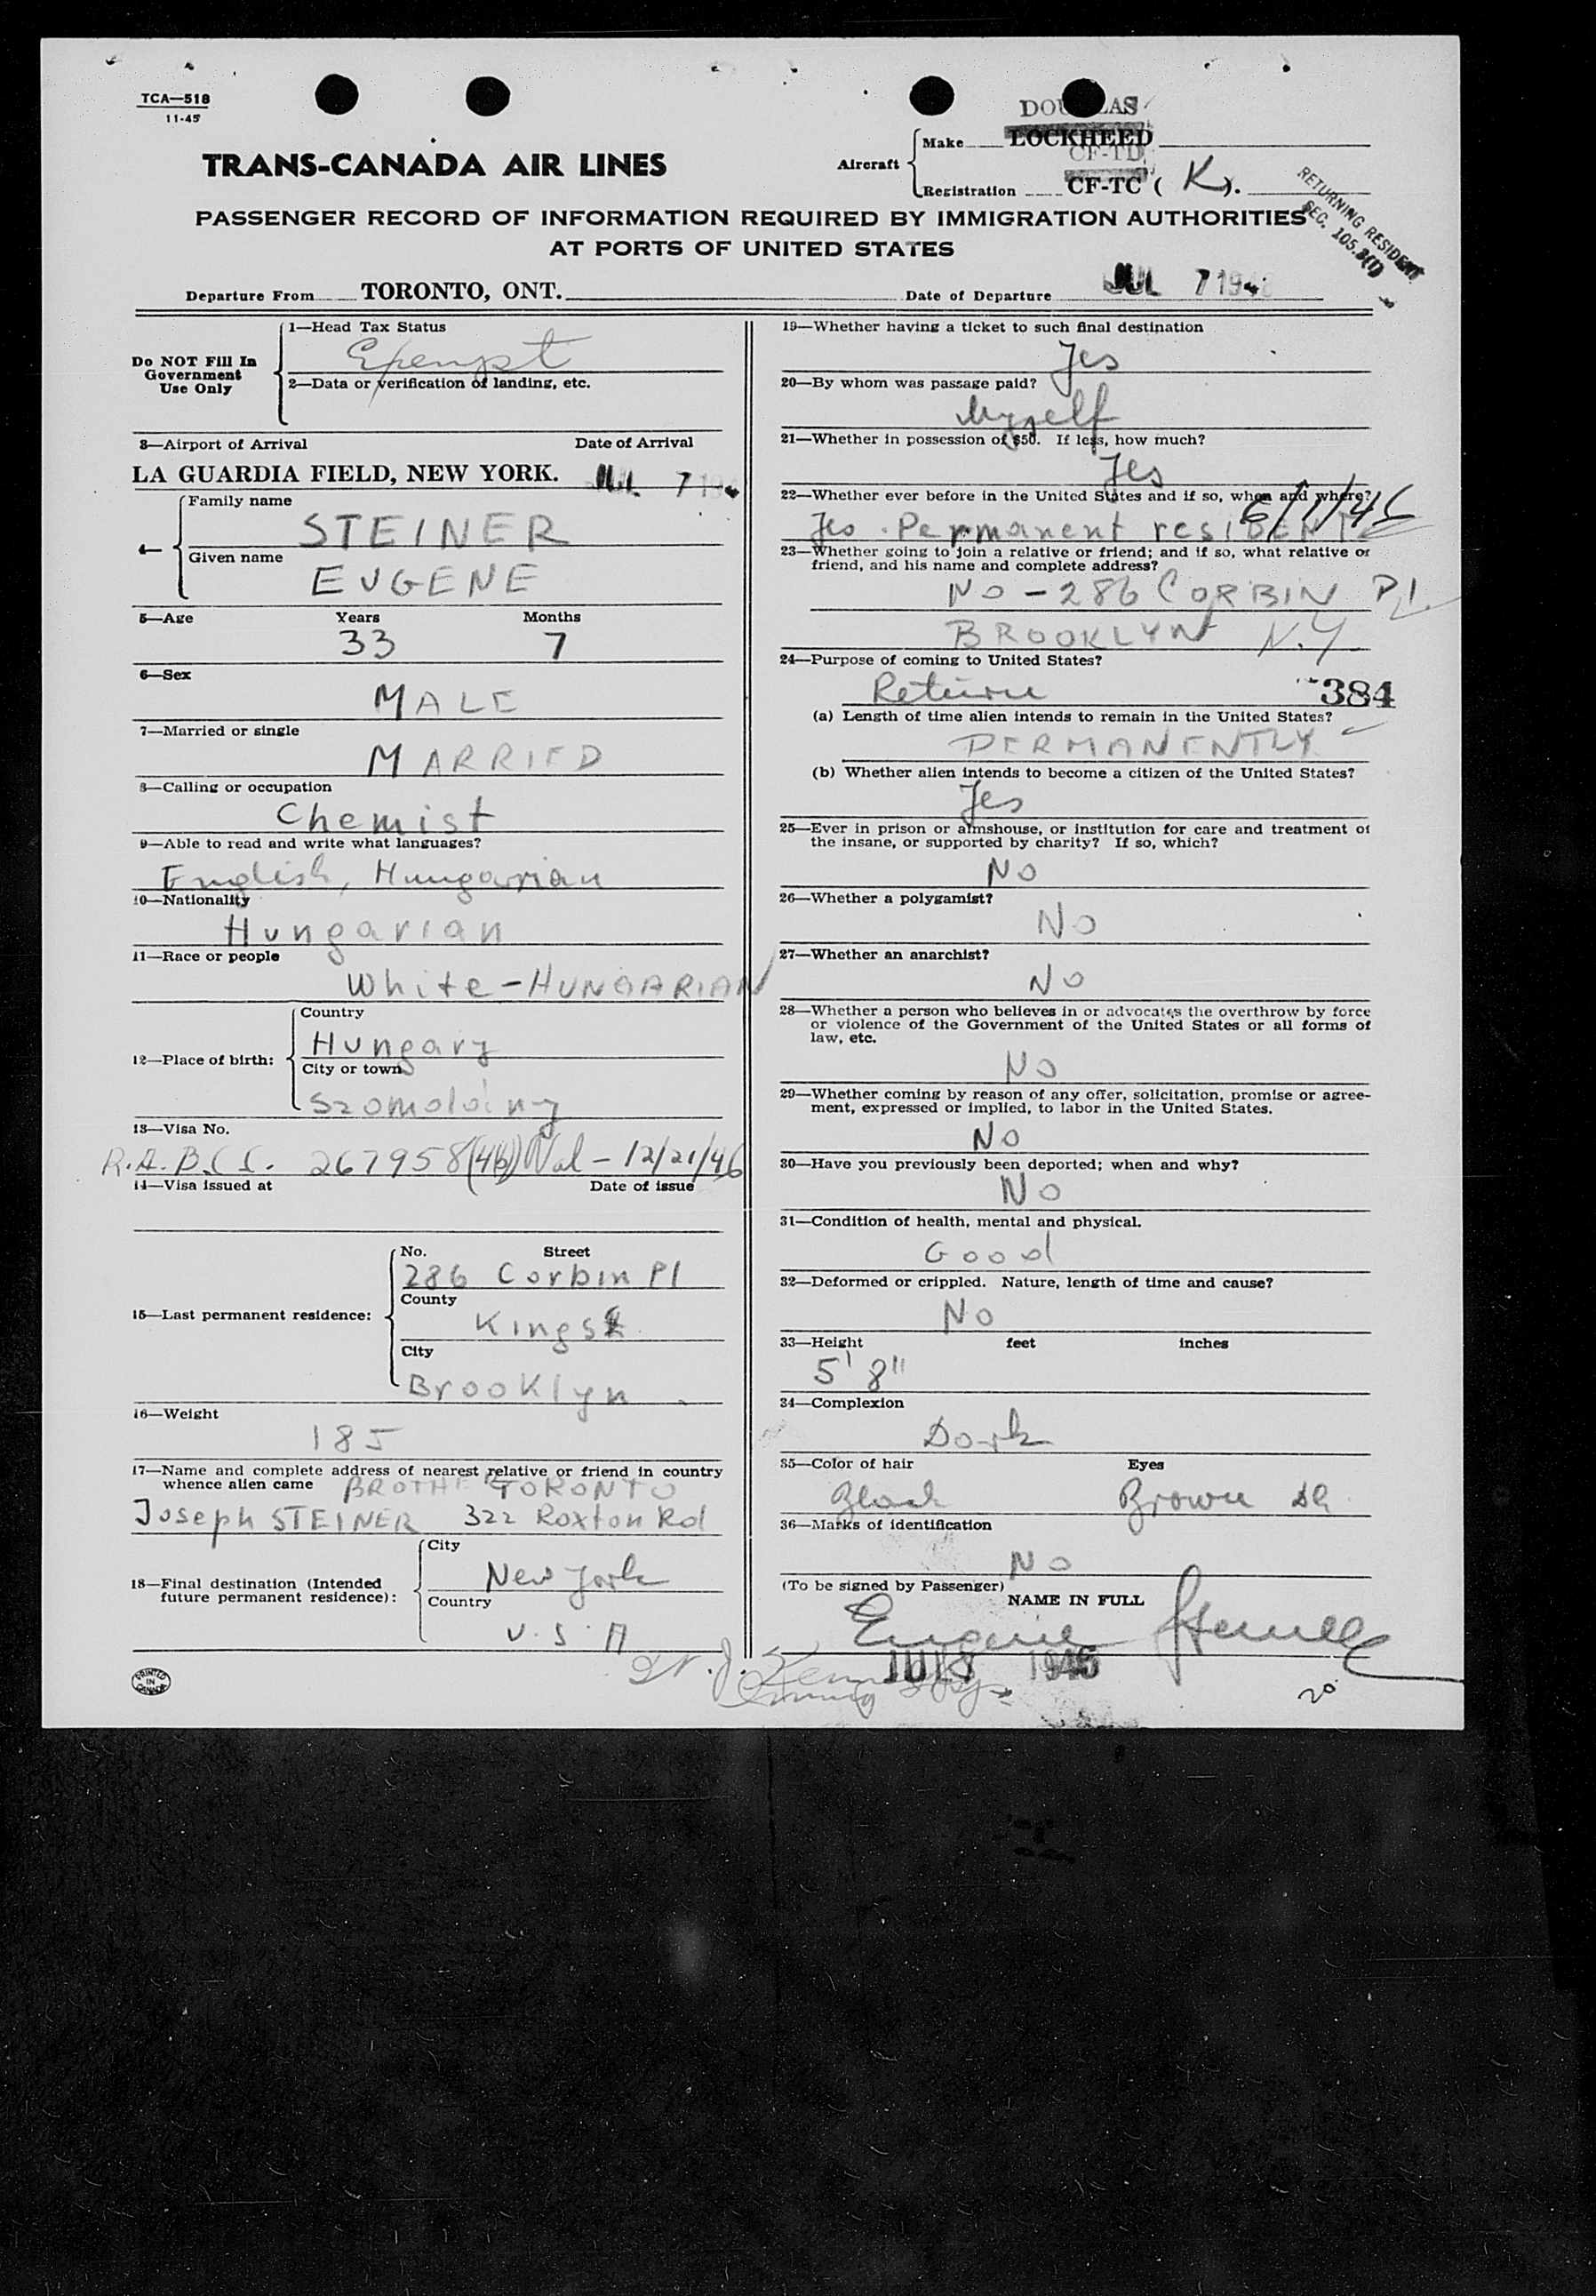 TCA—518
11-45
DOUGLAS
TRANS-CANADA AIR LINES
Aircraft
Make LOCKHEED
CF-TD
Registration CF-TC ( K ).
RETURNING RESIDENT
SEC. 105.3(1)
PASSENGER RECORD OF INFORMATION REQUIRED BY IMMIGRATION AUTHORITIES
AT PORTS OF UNITED STATES
Departure From TORONTO, ONT. Date of Departure JUL 7 194
Do NOT Fill In
Government
Use Only
1—Head Tax Status
Exempt
2—Data or verification of landing, etc.
3—Airport of Arrival Date of Arrival
LA GUARDIA FIELD, NEW YORK. JUL 7 194
4—
Family name
STEINER
Given name
EUGENE
5—Age Years Months
33 7
6—Sex
MALE
7—Married or single
MARRIED
8—Calling or occupation
Chemist
9—Able to read and write what languages?
English, Hungarian
10—Nationality
Hungarian
11—Race or people
White-HUNGARIAN
12—Place of birth:
Country
Hungary
City or town
Szomolány
13—Visa No.
R.A.B.C.I. 267958(4b) Val - 12/21/46
14—Visa issued at Date of issue
15—Last permanent residence:
No. Street
286 Corbin Pl
County
Kings
City
Brooklyn
16—Weight
185
17—Name and complete address of nearest relative or friend in country
whence alien came BROTHER TORONTO
Joseph STEINER 322 Roxton Rd
18—Final destination (Intended
future permanent residence):
City
New York
Country
U.S.A
PRINTED
IN
CANADA
19—Whether having a ticket to such final destination
Yes
20—By whom was passage paid?
Myself
21—Whether in possession of $50. If less, how much?
Yes
22—Whether ever before in the United States and if so, when and where?
Yes. Permanent resIDENT 6/1/46
23—Whether going to join a relative or friend; and if so, what relative or
friend, and his name and complete address?
NO - 286 CORBIN Pl.
BROOKLYN N.Y.
24—Purpose of coming to United States?
Return 384
(a) Length of time alien intends to remain in the United States?
PERMANENTLY
(b) Whether alien intends to become a citizen of the United States?
Yes
25—Ever in prison or almshouse, or institution for care and treatment of
the insane, or supported by charity? If so, which?
No
26—Whether a polygamist?
No
27—Whether an anarchist?
No
28—Whether a person who believes in or advocates the overthrow by force
or violence of the Government of the United States or all forms of
law, etc.
No
29—Whether coming by reason of any offer, solicitation, promise or agree-
ment, expressed or implied, to labor in the United States.
No
30—Have you previously been deported; when and why?
No
31—Condition of health, mental and physical.
Good
32—Deformed or crippled. Nature, length of time and cause?
No
33—Height feet inches
5' 8"
34—Complexion
Dark
35—Color of hair Eyes
Black Brown
36—Marks of identification
No
(To be signed by Passenger)
NAME IN FULL
Eugene Steiner
1946
20